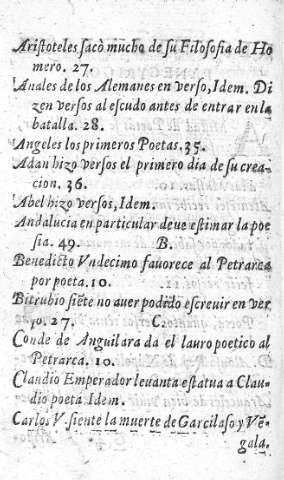 Aristoteles sacò mucho de su Filosofia de Ho
mero. 27.
Anales de los Alemanes en verso, Idem. Di
zen versos al escudo antes de entrar en la
batalla. 28.
Angeles los primeros Poetas. 35.
Adan hizo versos el primero dia de su crea-
cion. 36.
Abel hizo versos, Idem.
Andalucia en particular deue estimar la poe
sia. 49. B.
Benedicto Vndecimo fauorece al Petrarca
por poeta. 10.
Bitrubio siẽte no auer podido escreuir en ver
so. 27. C.
Conde de Anguilara da el lauro poetico al
Petrarca. 10.
Claudio Emperador leuanta estatua a Clau-
dio poeta Idem.
Carlos V. siente la muerte de Garcilaso y Vẽ-
gala.